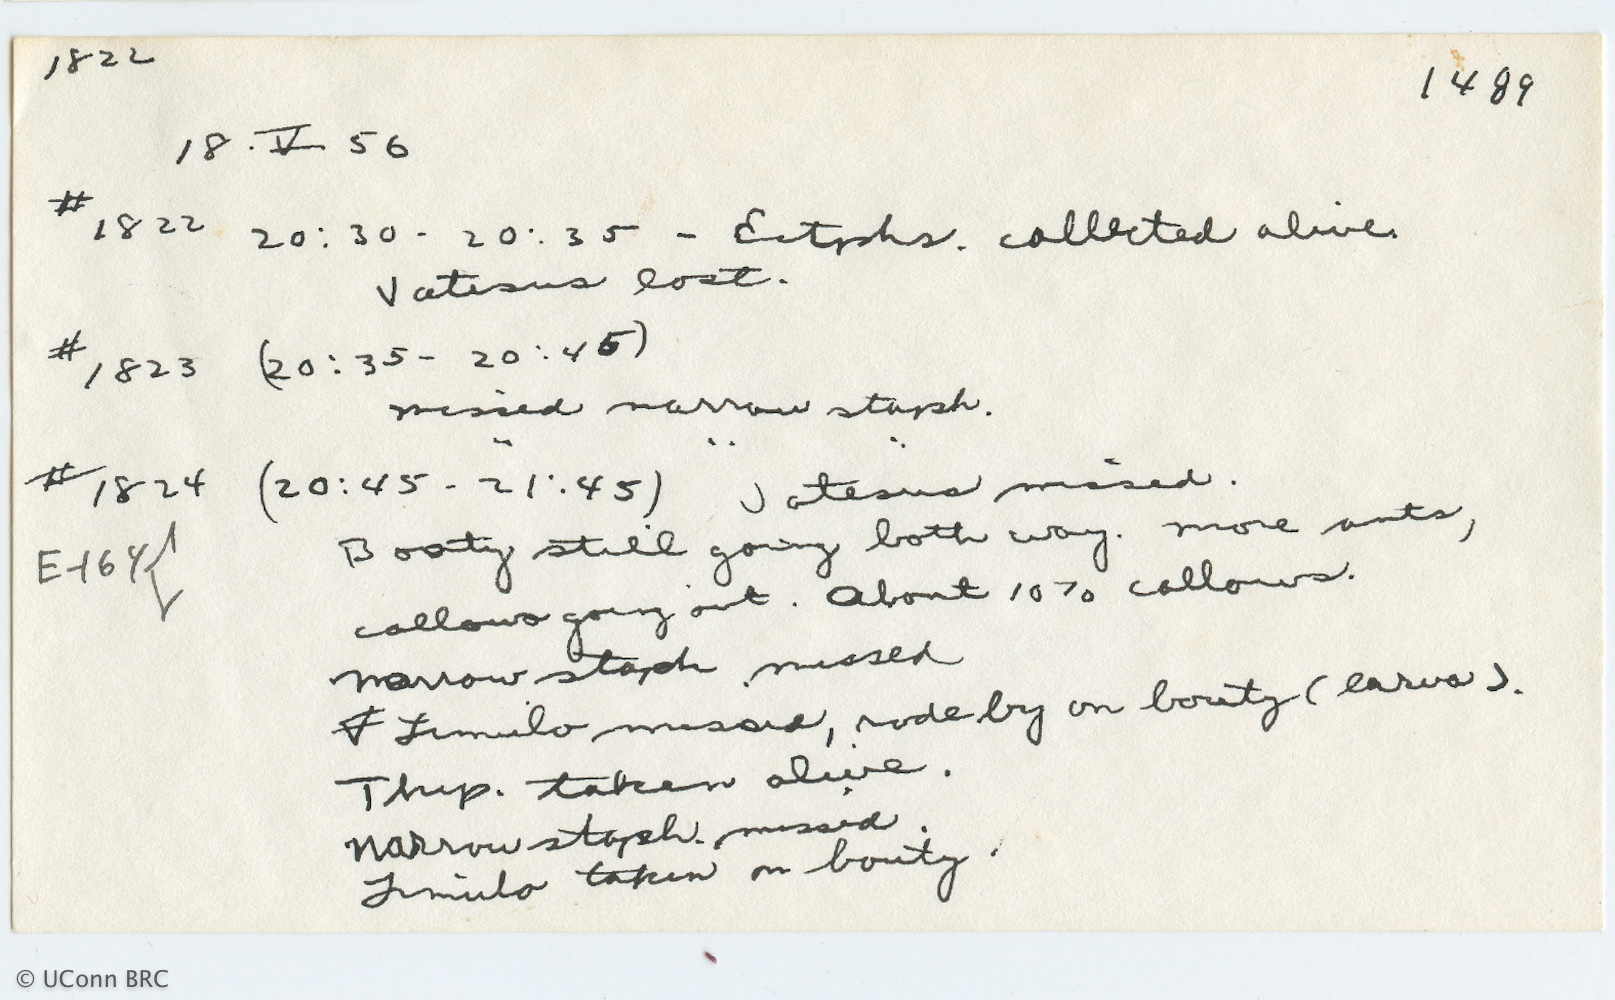 1822
1489
18.V 56
#1822 20:30 - 20:35 - Ectphs. collected alive.
Vatesus lost.
#1823 (20:35 - 20:45)
missed narrow staph.
" " "
#1824 (20:45 - 21:45) Vatesus missed.
E-164 { Booty still going both way. more ants,
callows going out. About 10% callows.
Narrow staph missed
Limulo missed, rode by on booty (larva).
Thyp. taken alive.
Narrow staph. missed.
Limulo taken on booty.
© UConn BRC